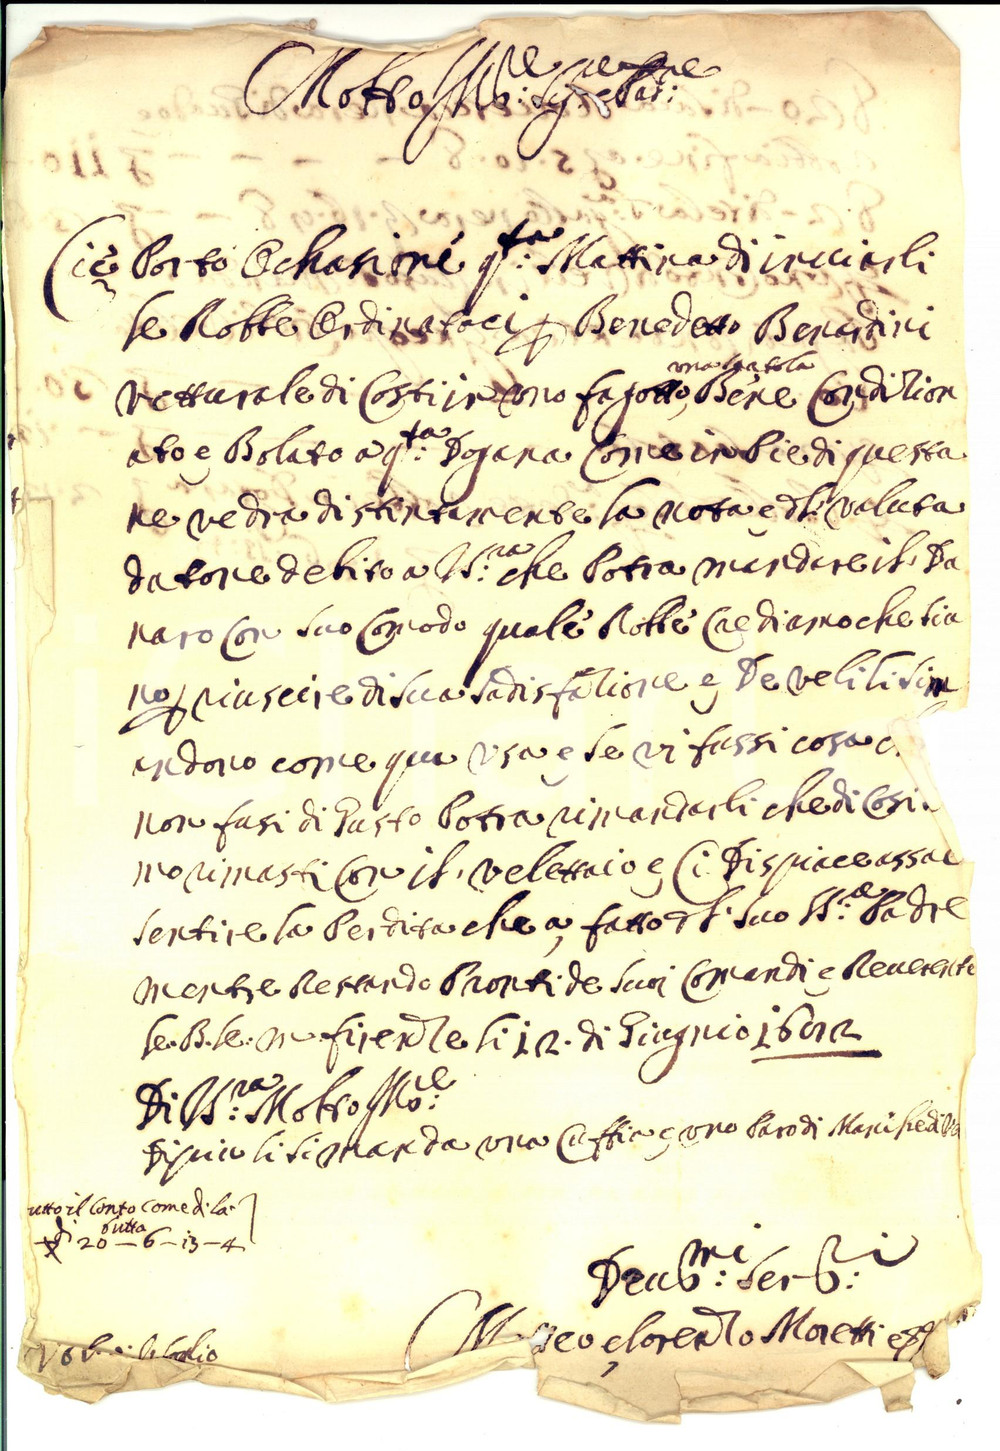 Molto
Ci è Porto Ochasione q.ta Mattina di inviarli
le Robbe Ordinataci p Benedetto Benardini
vetturale di Costi in uno fagotto, una scatola Bene Condition
ato e Bolato a q.ta Dogana Come in Pie di questa
ne vedra distintamente la nota e dl: valuta
datone debito a V.S.ra che Potra mandare il Da
naro Con suo Comodo quale Robbe Crediamo che sia
no p riuscire di sua sadisfatione e De veli li si m
andono come qua usa e se vi fussi cosa
non fusi di Gusto Potra rimandarli che di Cosi
mo rimasti Con il velettaio e Ci Dispiace assae
sentire la Perdita che a fatto dl Suo Padre
mentre Restando Pronti de Suoi Comandi e Reverente
le B. le: m firenze li 12 di Giugnio 1692
Di V.S.ra Molto
Di piu li si manda una Cuffia e uno Paro di Manichedi
utto il Conto come di la
di tutta
20 — 6 — 13 — 4
Deub.mi Ser.b:i
Moretti e